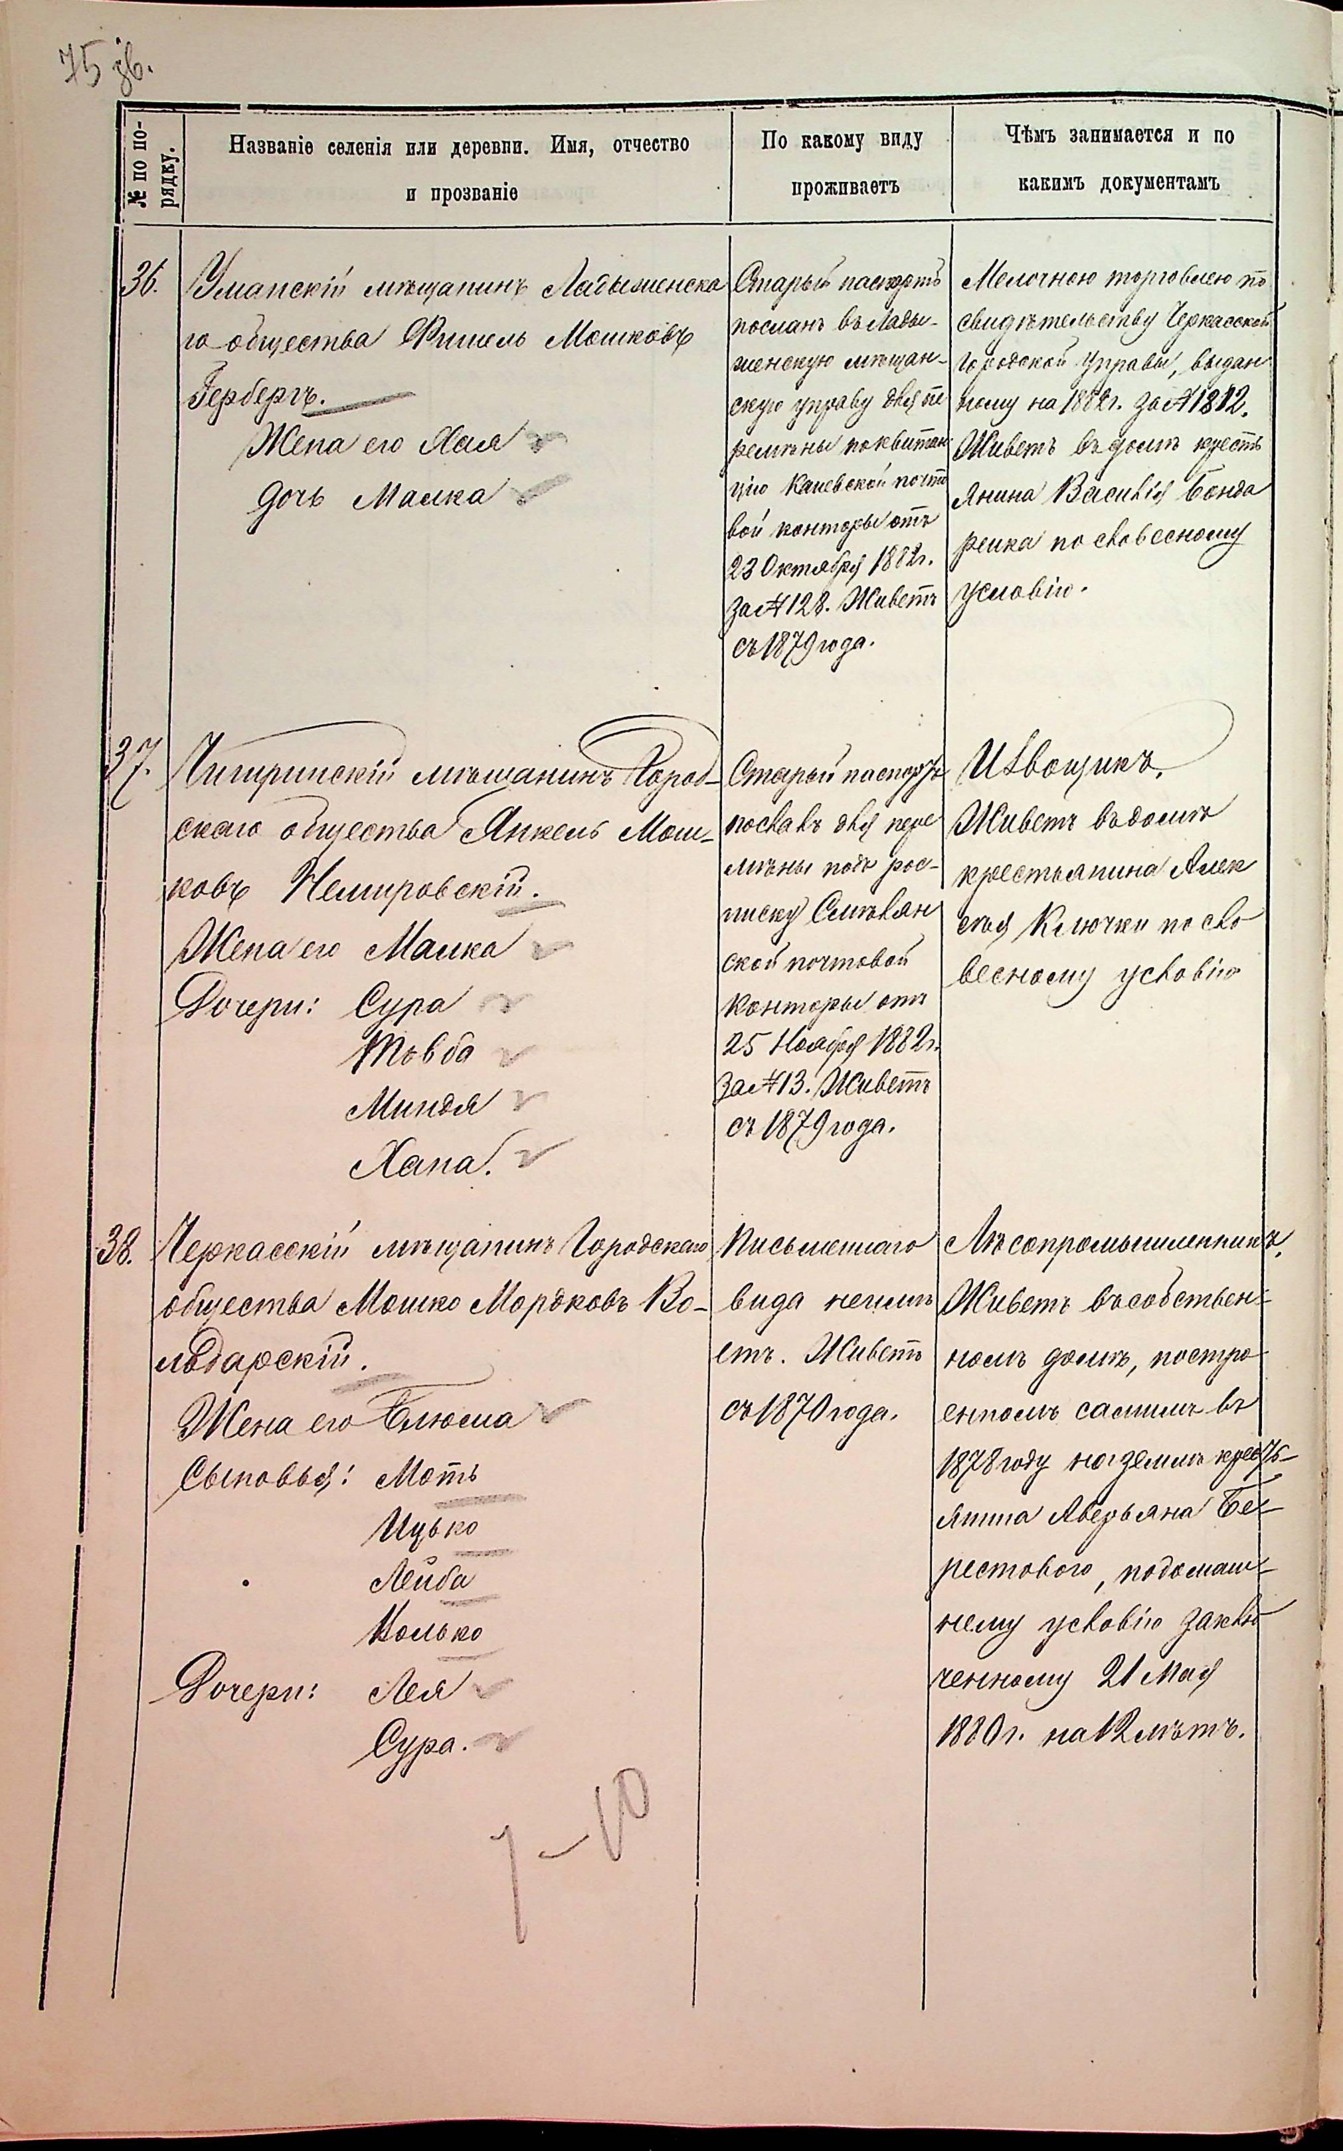 75 зв.
№ по по-
рядку.
Названіе селенія или деревни. Имя, отчество
и прозваніе
По какому виду
проживаетъ
Чѣмъ занимается и по
какимъ документамъ
36.
Уманскій мѣщанинъ Ладыженска
го общества Фишель Мошковъ
Гербергъ.
Жена его Хая
дочь Малка
Старый паспортъ
посланъ въ Лады-
женскую мѣщан-
скую управу для пе
ремѣны по квитан
ціи Каневской почто
вой конторы отъ
23 Октября 1882 г.
за № 128. Живетъ
съ 1879 года.
Мелочною торговлею по
свидѣтельству Черкасской
Городской Управы, выдан
ному на 1882 г. за № 1812.
Живетъ въ домѣ кресть
янина Василія Бонда
ренка по словесному
условію.
37.
Чигиринскій мѣщанинъ Город-
скаго общества Янкель Мош-
ковъ Немировскій.
Жена его Малка
Дочери: Сура
Товба
Миндля
Хана.
Старый паспортъ
пославъ для пере
мѣны подъ рос-
писку Смѣлян
ской почтовой
Конторы отъ
25 Ноября 1882 г.
за № 13. Живетъ
съ 1879 года.
Извощикъ.
Живетъ въ домѣ
крестьянина Алек
сѣя Ключки по сло
весному условію
38.
Черкасскій мѣщанинъ Городскаго
общества Мошко Мордковъ Во-
льдарскій.
Жена его Блюма
Сыновья: Моть
Ицько
Лейба
Нолько
Дочери: Лея
Сура.
Письменнаго
вида неимѣ
етъ. Живетъ
съ 1870 года.
Лѣсопромышленникъ.
Живетъ въ собствен-
номъ домѣ, постро
енномъ самимъ въ
1878 году на землѣ кресть-
янина Аверьяна Бе-
рестового, по домаш-
нему условію заклю
ченному 21 Мая
1880 г. на 12 лѣтъ.
7-10